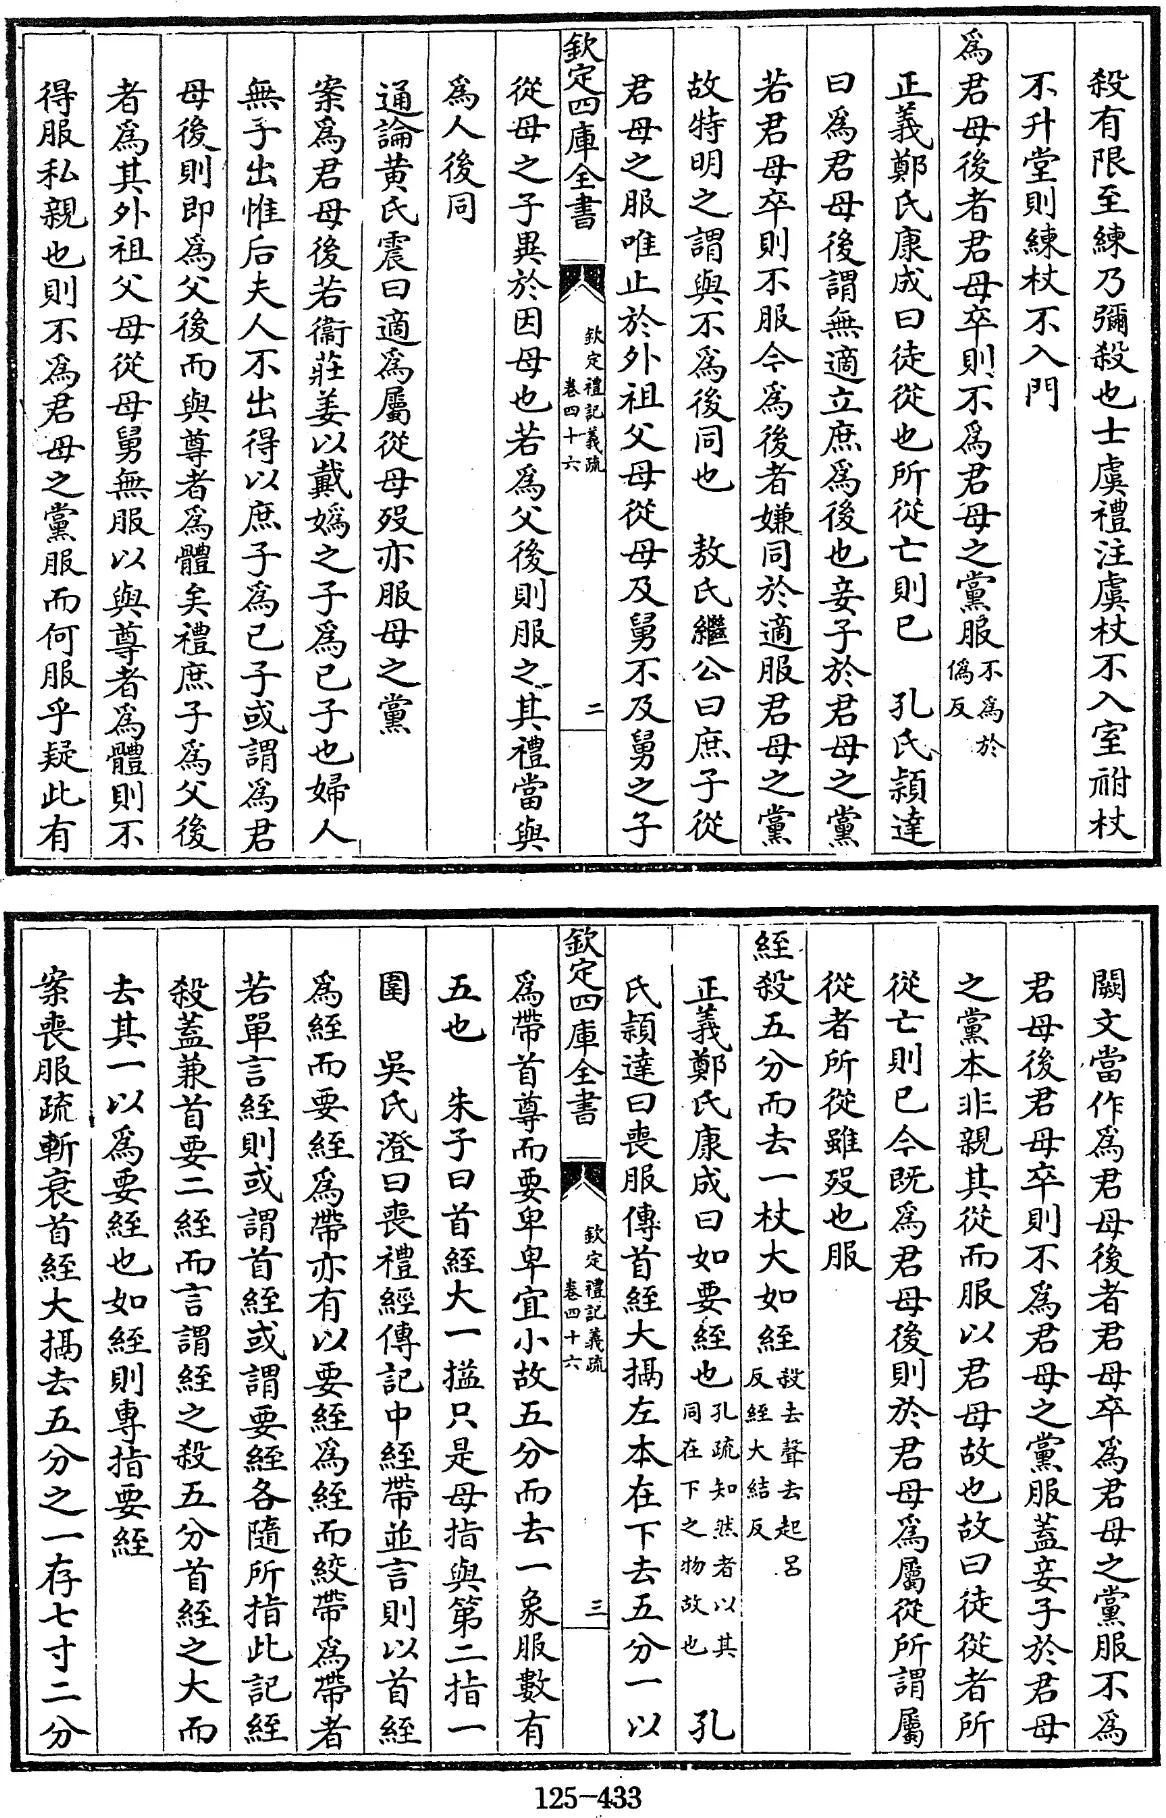 殺有限至練乃彌殺也士虞禮注虞杖不入室祔杖
不升堂則練杖不入門
爲君母後者君母卒則不爲君母之黨服不爲於
僞反
正義鄭氏康成曰徒從也所從亡則已　孔氏穎達
曰爲君母後謂無適立庶爲後也妾子於君母之黨
若君母卒則不服今爲後者嫌同於適服君母之黨
故特明之謂與不爲後同也　敖氏繼公曰庶子從
君母之服唯止於外祖父母從母及舅不及舅之子
欽定四庫全書
欽定禮記義疏
卷四十六
二
從母之子異於因母也若爲父後則服之其禮當與
爲人後同
通論黄氏震曰適爲屬從母殁亦服母之黨
案爲君母後若衞莊姜以戴嬀之子爲已子也婦人
無子出惟后夫人不出得以庶子爲已子或謂爲君
母後則即爲父後而與尊者爲體矣禮庶子爲父後
者爲其外祖父母從母舅無服以與尊者爲體則不
得服私親也則不爲君母之黨服而何服乎疑此有
闕文當作爲君母後者君母卒爲君母之黨服不爲
君母後君母卒則不爲君母之黨服蓋妾子於君母
之黨本非親其從而服以君母故也故曰徒從者所
從亡則已今既爲君母後則於君母爲屬從所謂屬
從者所從雖殁也服
絰殺五分而去一杖大如絰殺去聲去起呂
反絰大結反
正義鄭氏康成曰如要絰也孔疏知然者以其
同在下之物故也　孔
氏穎達曰喪服傳首絰大搹左本在下去五分一以
欽定四庫全書
欽定禮記義疏
卷四十六
三
爲帶首尊而要卑卑宜小故五分而去一象服數有
五也　朱子曰首絰大一搤只是母指與第二指一
圍　吳氏澄曰喪禮經傳記中絰帶並言則以首絰
爲絰而要絰爲帶亦有以要絰爲絰而絞帶爲帶者
若單言絰則或謂首絰或謂要絰各隨所指此記絰
殺蓋兼首要二絰而言謂絰之殺五分首絰之大而
去其一以爲要絰也如絰則專指要絰
案喪服疏斬衰首絰大搹去五分之一存七寸二分
125-433